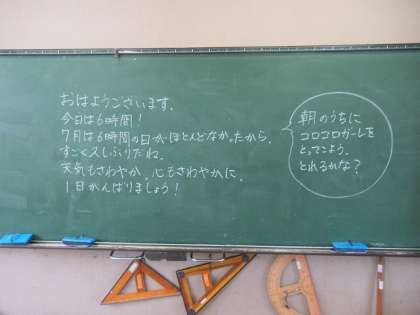 おはようございます。
今日は6時間！
7月は6時間の日がほとんどなかったから、
すごく久しぶりだね。
天気もさわやか、心もさわやかに、
1日がんばりましょう！
朝のうちに
コロコロガーレを
とってこよう。
とれるかな？